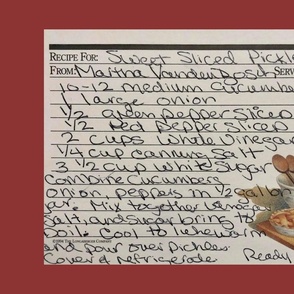 RECIPE FOR: Sweet Sliced Pickle
FROM: Martha VandenBosch SERV
10-12 medium cucumbe
1 large onion
1/2 green pepper sliced
1/2 red pepper sliced
2 cups white vinegar
1/4 cup canning salt
3 1/2 cup white sugar
Combine cucumbers
onion peppers in 1/2 gallon
jar. Mix together vinegar
salt, and sugar bring to
boil. Cool to lukewarm
©1994 THE LONGABERGER COMPANY
and pour over pickles.
Cover & refrigerate Ready